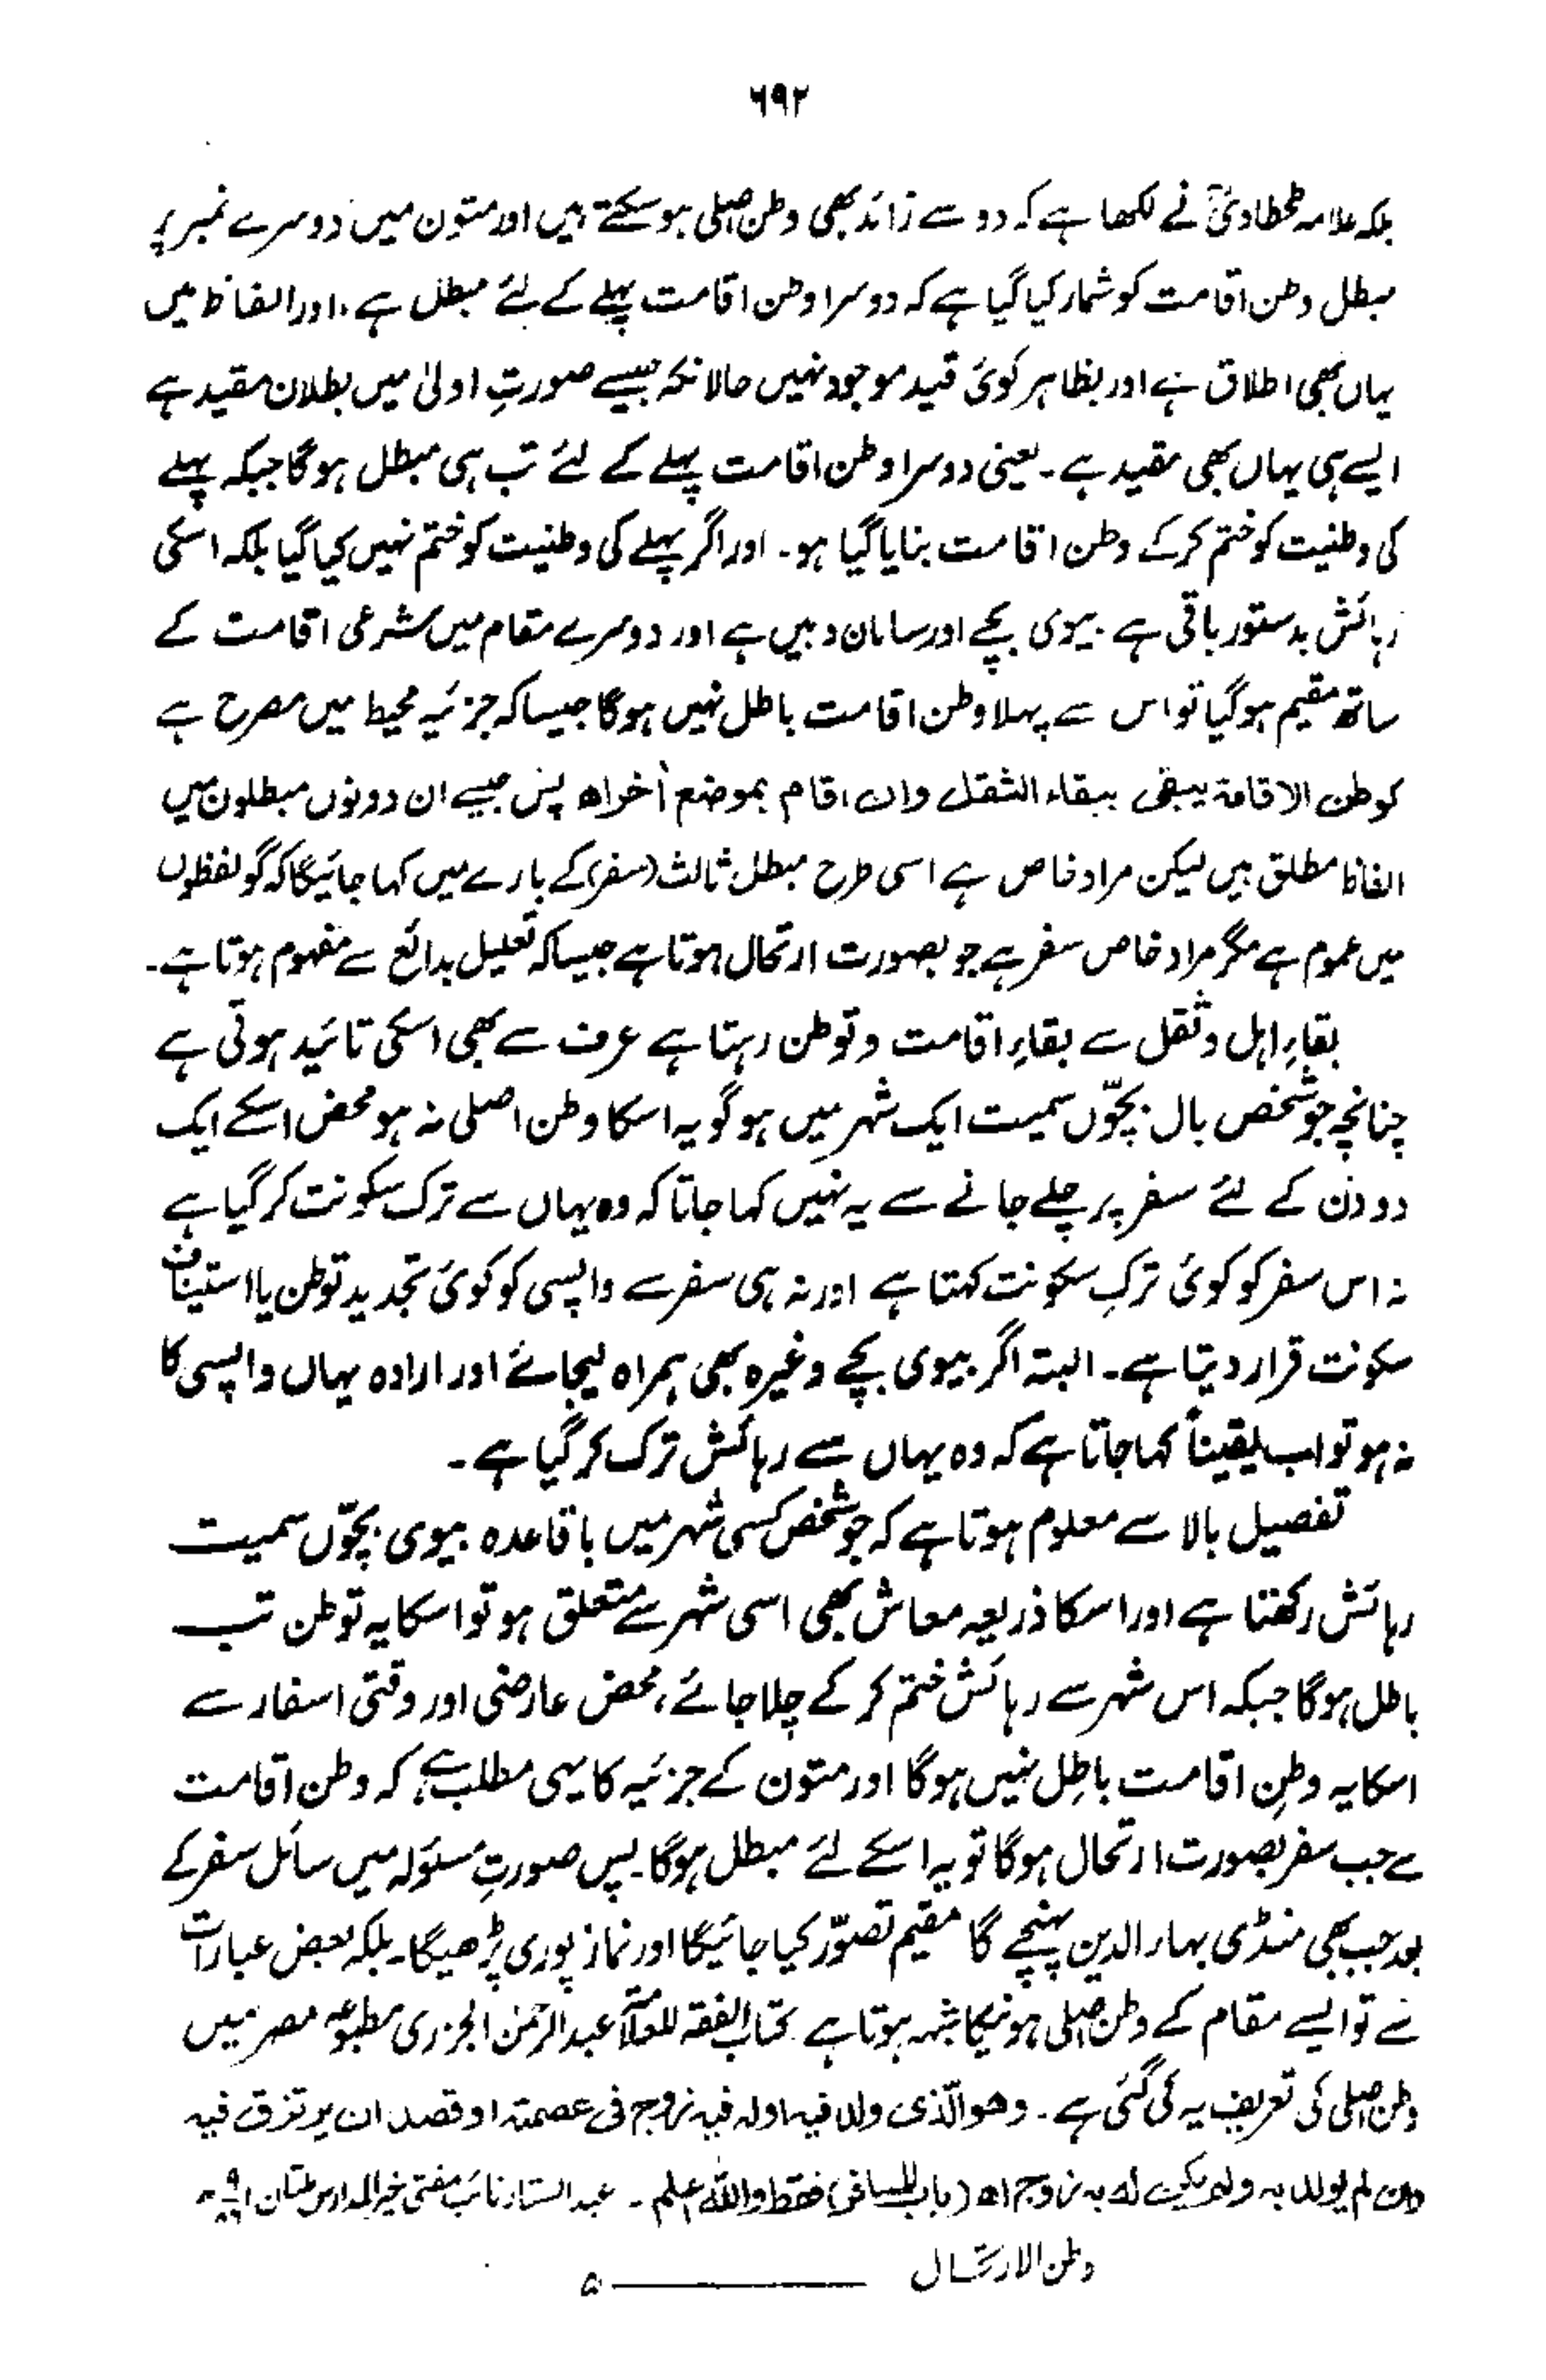 ۶۹۲
بلکہ علامہ طحطاویؒ نے لکھا ہے کہ دو سے زائد بھی وطن اصلی ہوسکتے ہیں اور متون میں دوسرے نمبر پر
مبطل وطن اقامت کو شمار کیا گیا ہے کہ دوسرا وطن اقامت پہلے کے لئے مبطل ہے، اور الفاظ میں
یہاں بھی اطلاق ہے اور بظاہر کوئی قید موجود نہیں حالانکہ جیسے صورتِ اولیٰ میں بطلان مقید ہے
ایسے ہی یہاں بھی مقید ہے۔ یعنی دوسرا وطن اقامت پہلے کے لئے تب ہی مبطل ہوگا جبکہ پہلے
کی وطنیت کو ختم کرکے وطن اقامت بنایا گیا ہو۔ اور اگر پہلے کی وطنیت کو ختم نہیں کیا گیا بلکہ اسکی
رہائش بدستور باقی ہے بیوی بچے اور سامان وہیں ہے اور دوسرے مقام میں شرعی اقامت کے
ساتھ مقیم ہوگیا تو اس سے پہلا وطن اقامت باطل نہیں ہوگا جیسا کہ جزئیہ محیط میں مصرح ہے
کوطن الاقامۃ یبقی ببقاء الثقل وان اقام بموضع اٰخر اھ پس جیسے ان دونوں مبطلون میں
الفاظ مطلق ہیں لیکن مراد خاص ہے اسی طرح مبطل ثالث (سفر) کے بارے میں کہا جائیگا کہ گو لفظوں
میں عموم ہے مگر مراد خاص سفر ہے جو بصورت ارتحال ہوتا ہے جیسا کہ تعلیل بدائع سے مفہوم ہوتا ہے۔
بقاءِ اہل و ثقل سے بقاءِ اقامت و توطن رہتا ہے عرف سے بھی اسکی تائید ہوتی ہے
چنانچہ جو شخص بال بچّوں سمیت ایک شہر میں ہو گو یہ اسکا وطن اصلی نہ ہو محض اسکے ایک
دو دن کے لئے سفر پر چلے جانے سے یہ نہیں کہا جاتا کہ وہ یہاں سے ترک سکونت کر گیا ہے
نہ اس سفر کو کوئی ترکِ سکونت کہتا ہے اور نہ ہی سفر سے واپسی کو کوئی تجدید توطن یا استیناف
سکونت قرار دیتا ہے۔ البتہ اگر بیوی بچے وغیرہ بھی ہمراہ لیجائے اور ارادہ یہاں واپسی کا
نہ ہو تو اب یقیناً کہا جاتا ہے کہ وہ یہاں سے رہائش ترک کر گیا ہے۔
تفصیل بالا سے معلوم ہوتا ہے کہ جو شخص کسی شہر میں باقاعدہ بیوی بچّوں سمیت
رہائش رکھتا ہے اور اسکا ذریعہ معاش بھی اسی شہر سے متعلق ہو تو اسکا یہ توطن تب
باطل ہوگا جبکہ اس شہر سے رہائش ختم کر کے چلا جائے، محض عارضی اور وقتی اسفار سے
اسکا یہ وطنِ اقامت باطِل نہیں ہوگا اور متون کے جزئیہ کا یہی مطلب ہے کہ وطن اقامت
سے جب سفر بصورت ارتحال ہوگا تو یہ اسکے لئے مبطل ہوگا۔ پس صورتِ مسئولہ میں سائل سفر کے
بعد جب بھی منڈی بہاء الدین پہنچے گا مقیم تصوّر کیا جائیگا اور نماز پوری پڑھیگا۔ بلکہ بعض عبارات
سے تو ایسے مقام کے وطن اصلی ہونیکا شبہ ہوتا ہے کتاب الفقہ للعلامۃ عبدالرحمٰن الجزری مطبوعہ مصر میں
وطن اصلی کی تعریف یہ کی گئی ہے۔ وھو الّذی ولد فیہ اولہ فیہ زوج فی عصمتہ او قصد ان یرتزق فیہ
وان لم یولد بہ ولم یکن لہ بہ زوج اھ (باب المسافر) فقط واللہ اعلم۔ عبدالستار نائب مفتی خیر المدارس ملتان
وطن الارتحال
۵